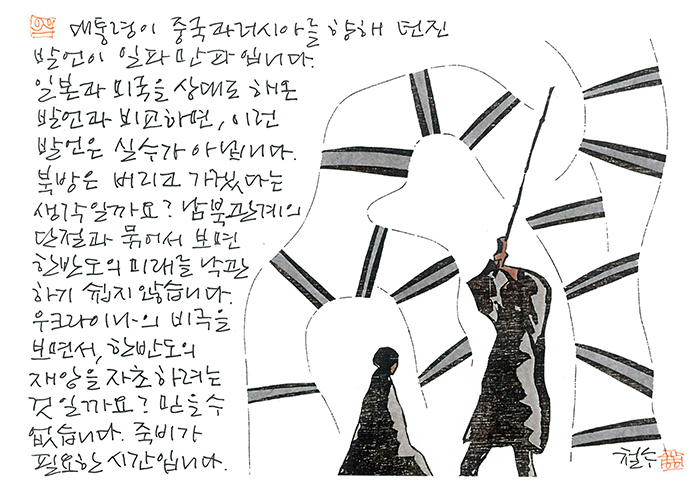 대통령이 중국과 러시아를 향해 던진
발언이 일파만파입니다.
일본과 미국을 상대로 해온
발언과 비교하면, 이런
발언은 실수가 아닙니다.
북방은 버리고 가겠다는
생각일까요? 남북관계의
단절과 묶어서 보면
한반도의 미래를 낙관
하기 쉽지 않습니다.
우크라이나의 비극을
보면서, 한반도의
재앙을 자초하려는
것일까요? 믿을 수
없습니다. 죽비가
필요한 시간입니다.
철수